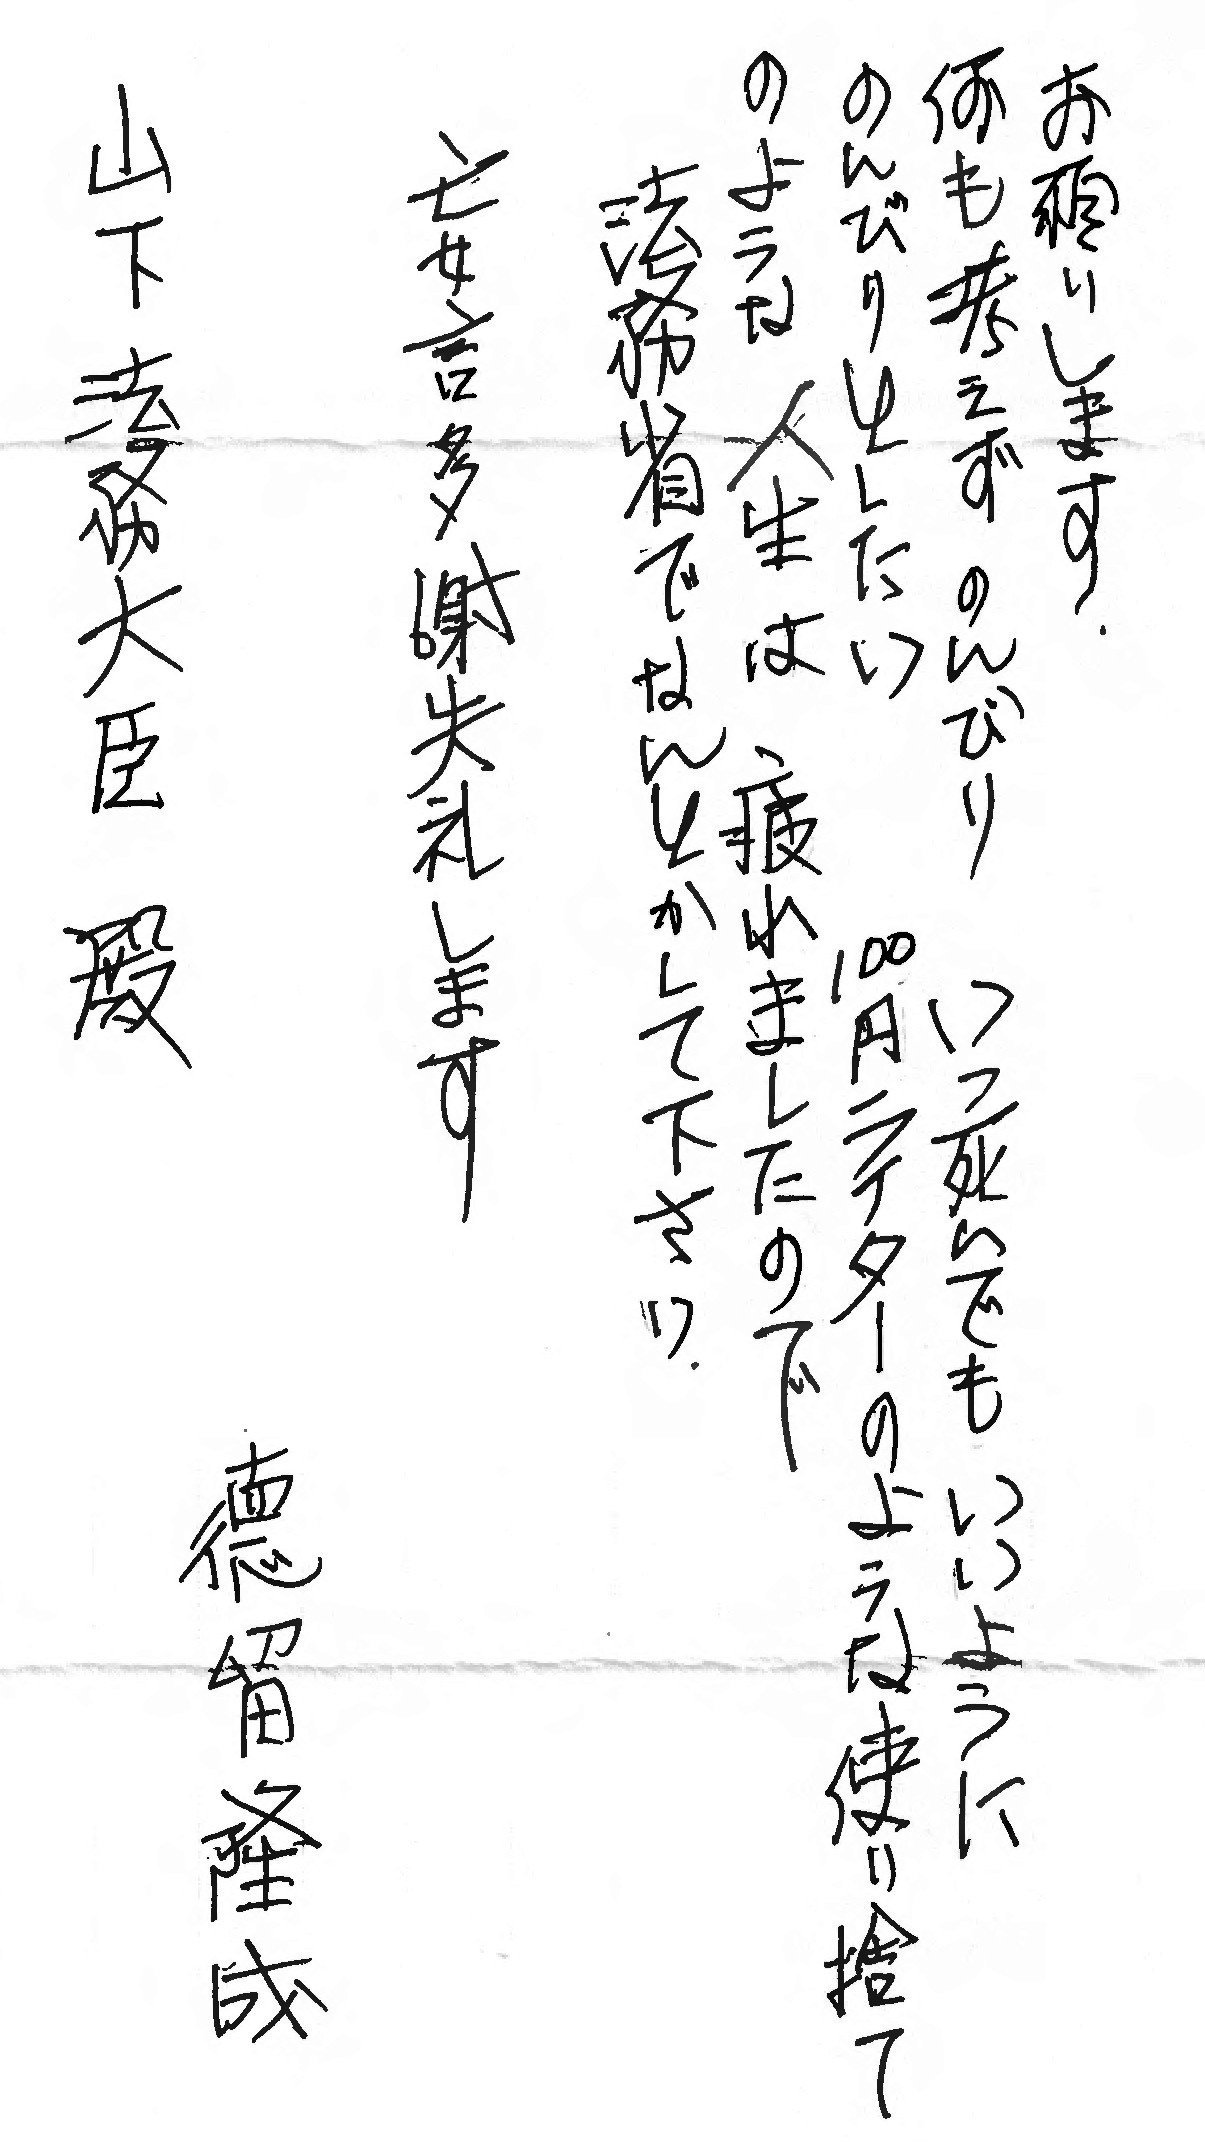 お願いします.
何も考えず のんびり いつ死んでも いいように
のんびり生したい 100円ライターのような使い捨て
のような 人生は、疲れましたので
法務省でなんとかして下さい.
妄言多謝失礼します
徳留隆成
山下法務大臣 殿